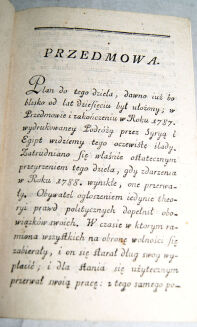 PRZEDMOWA.
Plan do tego dzieła, dawno iuż bo
blisko od lat dziesięciu był ułożony; w
Przedmowie i zakończeniu w Roku 1787.
wydrukowaney Podróży przez Syryą i
Egipt widziemy tego oczewiste ślady.
Zatrudniano się właśnie ostatecznym
przeyrzeniem tego dzieła, gdy zdarzenia
w Roku 1788. wynikłe, one przerwa-
ły. Obywatel ogłoszeniem iedynie theo-
ryi praw politycznych dopełnił obo-
wiązków swoich. W czasie w ktorym ra-
miona wszystkich na obronę wolności się
zabierały, i on się starał dług swoy wy-
płacić; i dla stania się użytecznym
przerwał swoią pracę: z tego samego po-